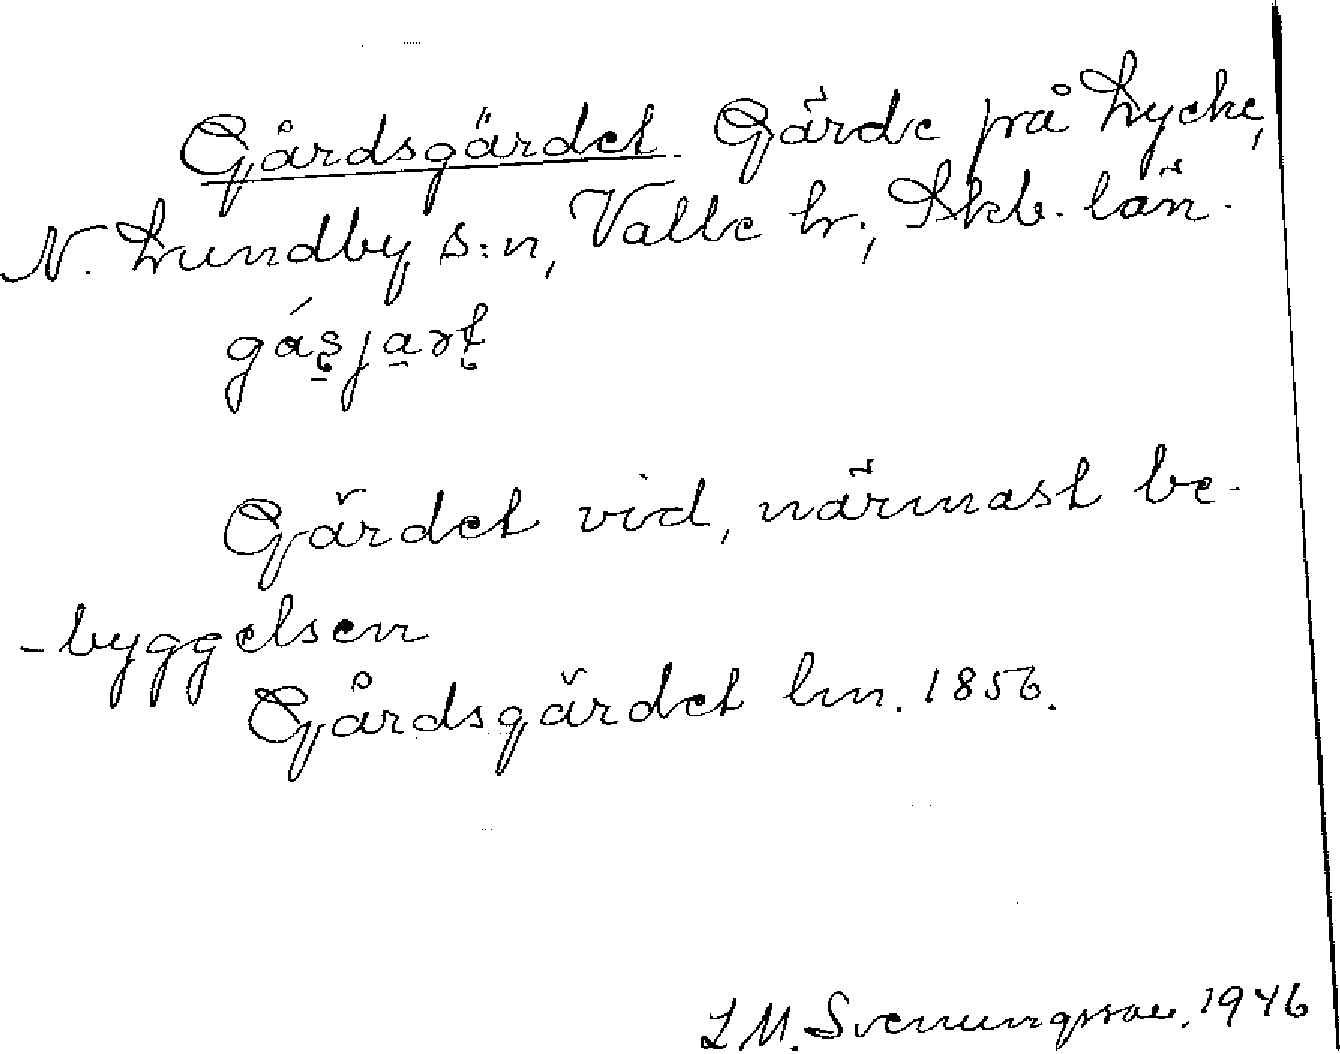 Gårdsgärdet Gärde på Lycke,
N. Lundby s:n, Valle hr., Skb. län.
Gärdet vid, närmast be-
-byggelsen
Gårdsgärdet lm. 1856.
L M. Svenungsson. 1946